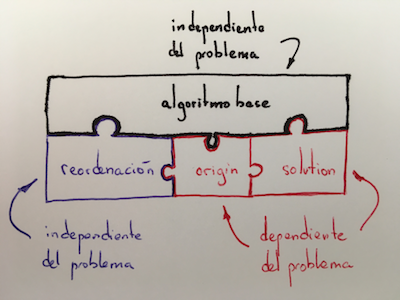 independiente
del problema
algoritmo base
reordenación
origin
solution
independiente
del problema
dependiente
del problema